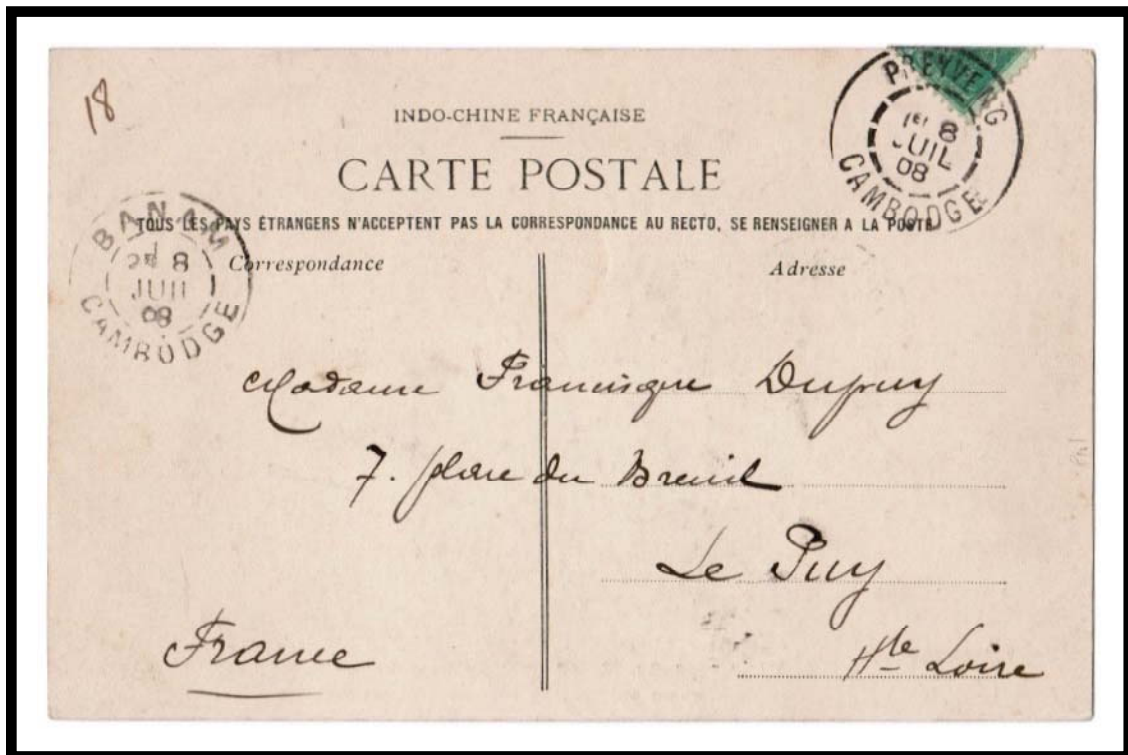 18
INDO-CHINE FRANÇAISE
CARTE POSTALE
PREYVENG
1er 8
JUIL
08
CAMBODGE
TOUS LES PAYS ÉTRANGERS N'ACCEPTENT PAS LA CORRESPONDANCE AU RECTO, SE RENSEIGNER A LA POSTE
BANAM
8
JUIL
08
CAMBODGE
Correspondance
Adresse
Madame Francisque Dupuy
7. place du Breuil
Le Puy
Hte Loire
France